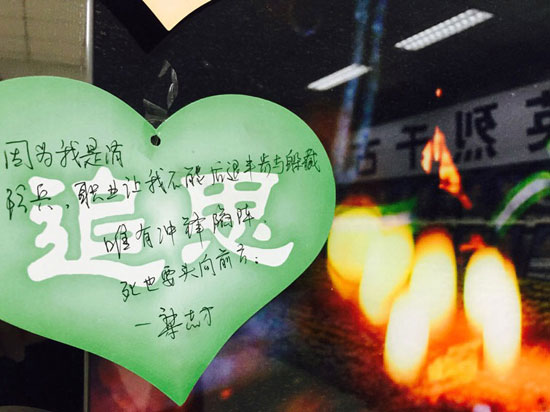 因为我是消
防兵，职业让我不能后退半步与躲藏
追思
唯有冲锋陷阵.
死也要头向前方:
英烈千古